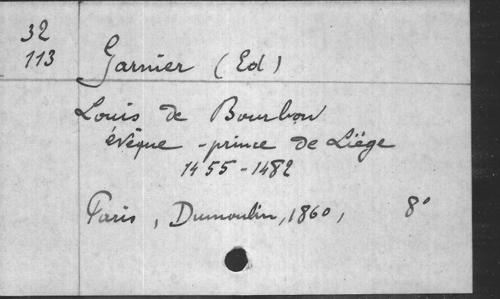 32
113
Garnier (Ed)
Louis de Bourbon
évêque - prince de Liège
1455-1482
Paris, Dumoulin, 1860, 8°